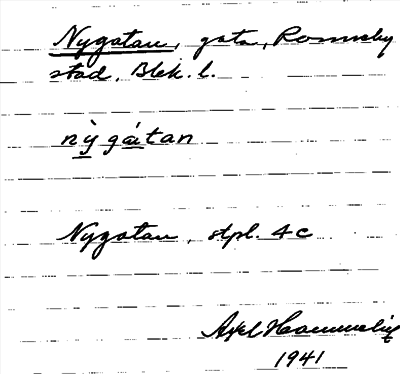 Nygatan, gata, Ronneby
stad, Blek. l.
nỳ gátan
Nygatan, stpl. 4c
Axel
1941